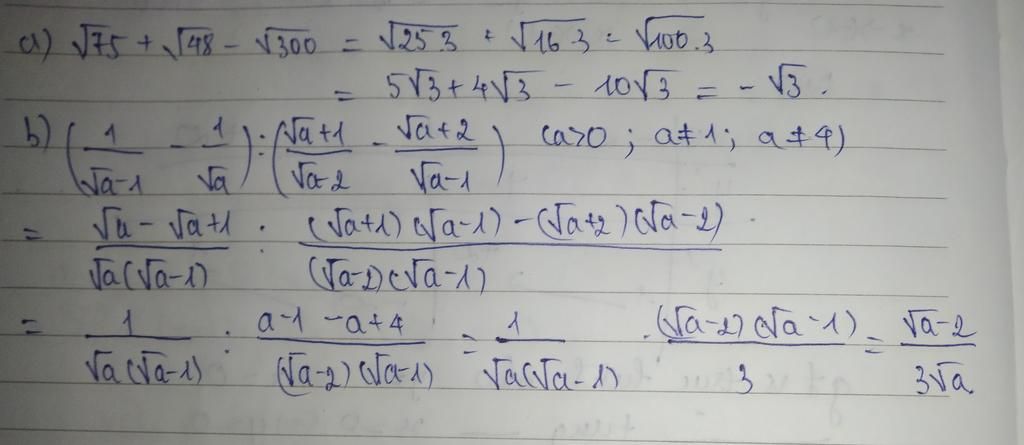 a) √75 + √48 - √300 = √25.3 + √16.3 - √100.3
= 5√3 + 4√3 - 10√3 = -√3.
b) (1/(√a-1) - 1/√a) : ((√a+1)/(√a-2) - (√a+2)/(√a-1)) (a>0; a≠1; a≠4)
= (√a - √a+1)/(√a(√a-1)) : ((√a+1)(√a-1)-(√a+2)(√a-2))/((√a-2)(√a-1))
= 1/(√a(√a-1)) : (a-1-a+4)/((√a-2)(√a-1)) = 1/(√a(√a-1)) . ((√a-2)(√a-1))/3 = (√a-2)/(3√a)